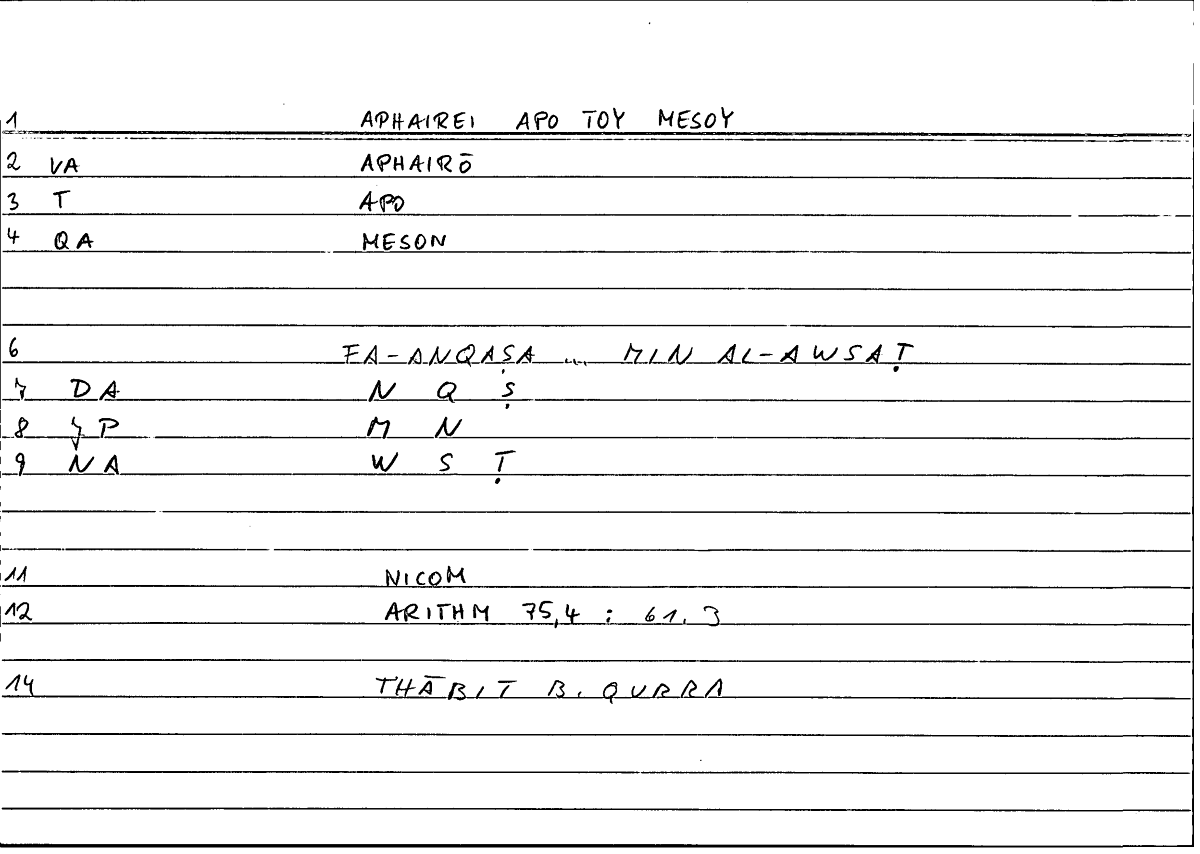 1 APHAIREI APO TOY MESOY
2 VA APHAIRŌ
3 T APO
4 QA MESON
6 FA-ANQAṢA ... MIN AL-AWSAṬ
7 DA N Q Ṣ
8 P M N
9 NA W S Ṭ
11 NICOM
12 ARITHM 75,4 : 61.3
14 THĀBIT B. QURRA